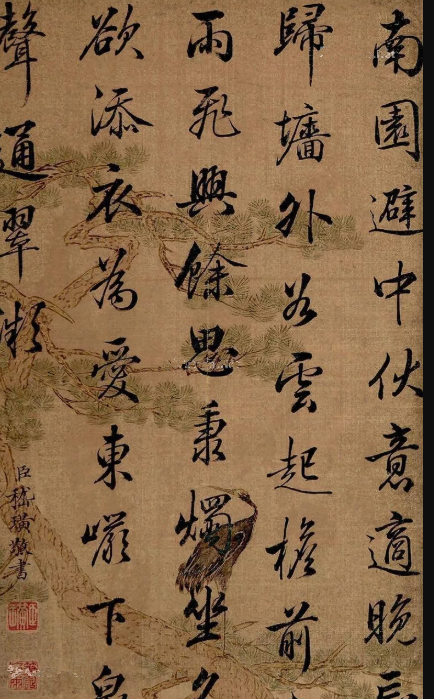 南園避中伏意適晚忘
歸墻外谷雲起檐前
雨飛興餘思秉燭坐久
欲添衣為愛東巖下泉
聲通翠微
臣嵇璜敬書